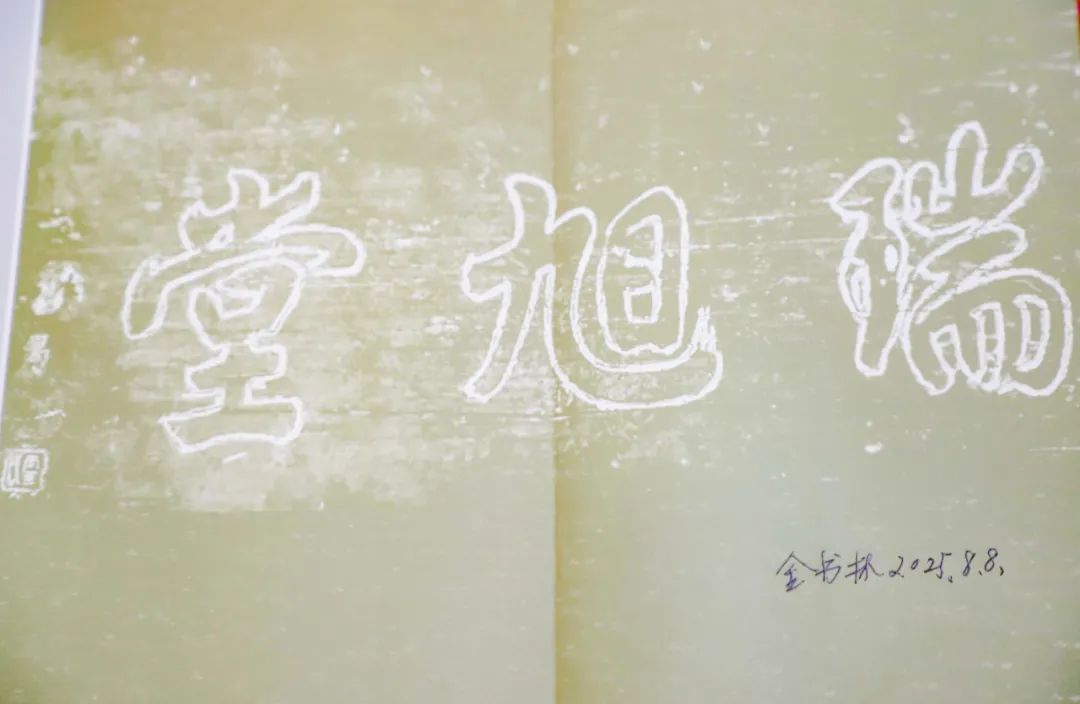 瑞旭堂
金书林 2025.8.8.